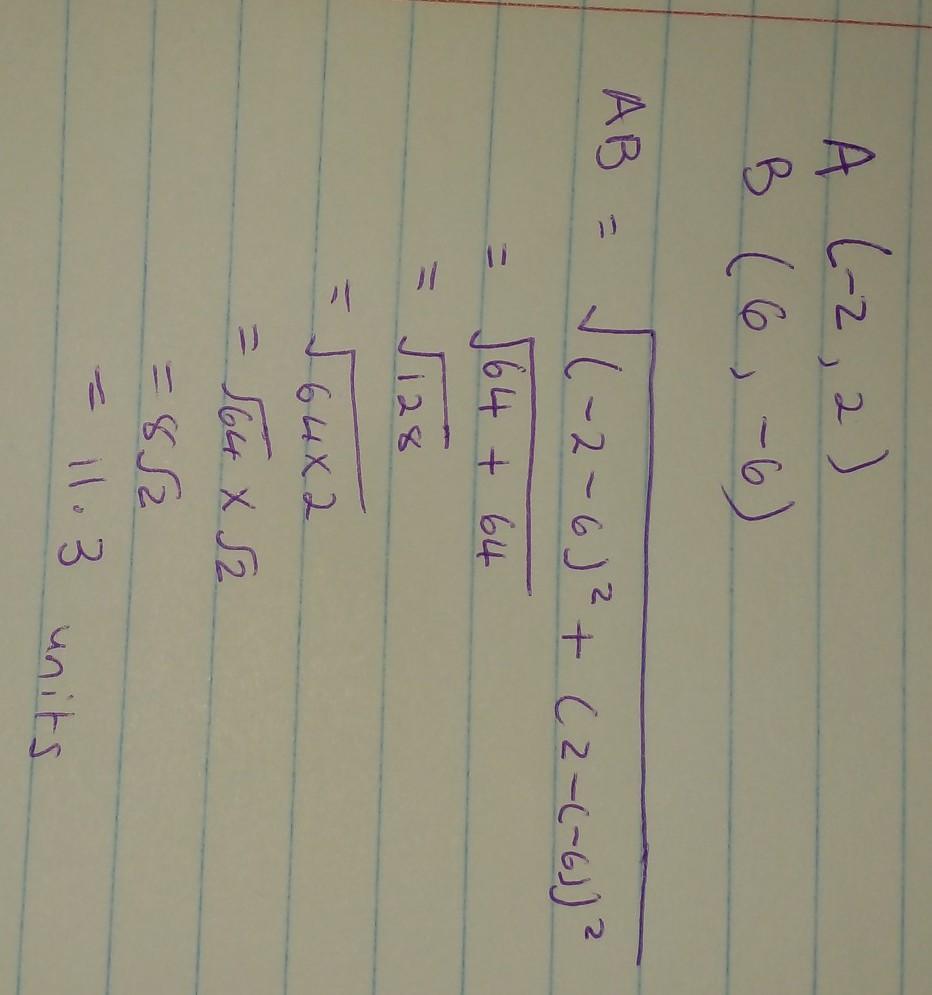 A (-2, 2)
B (6, -6)
AB = √(-2-6)² + (2-(-6))²
= √64 + 64
= √128
= √64×2
= √64 × √2
= 8√2
= 11.3 units